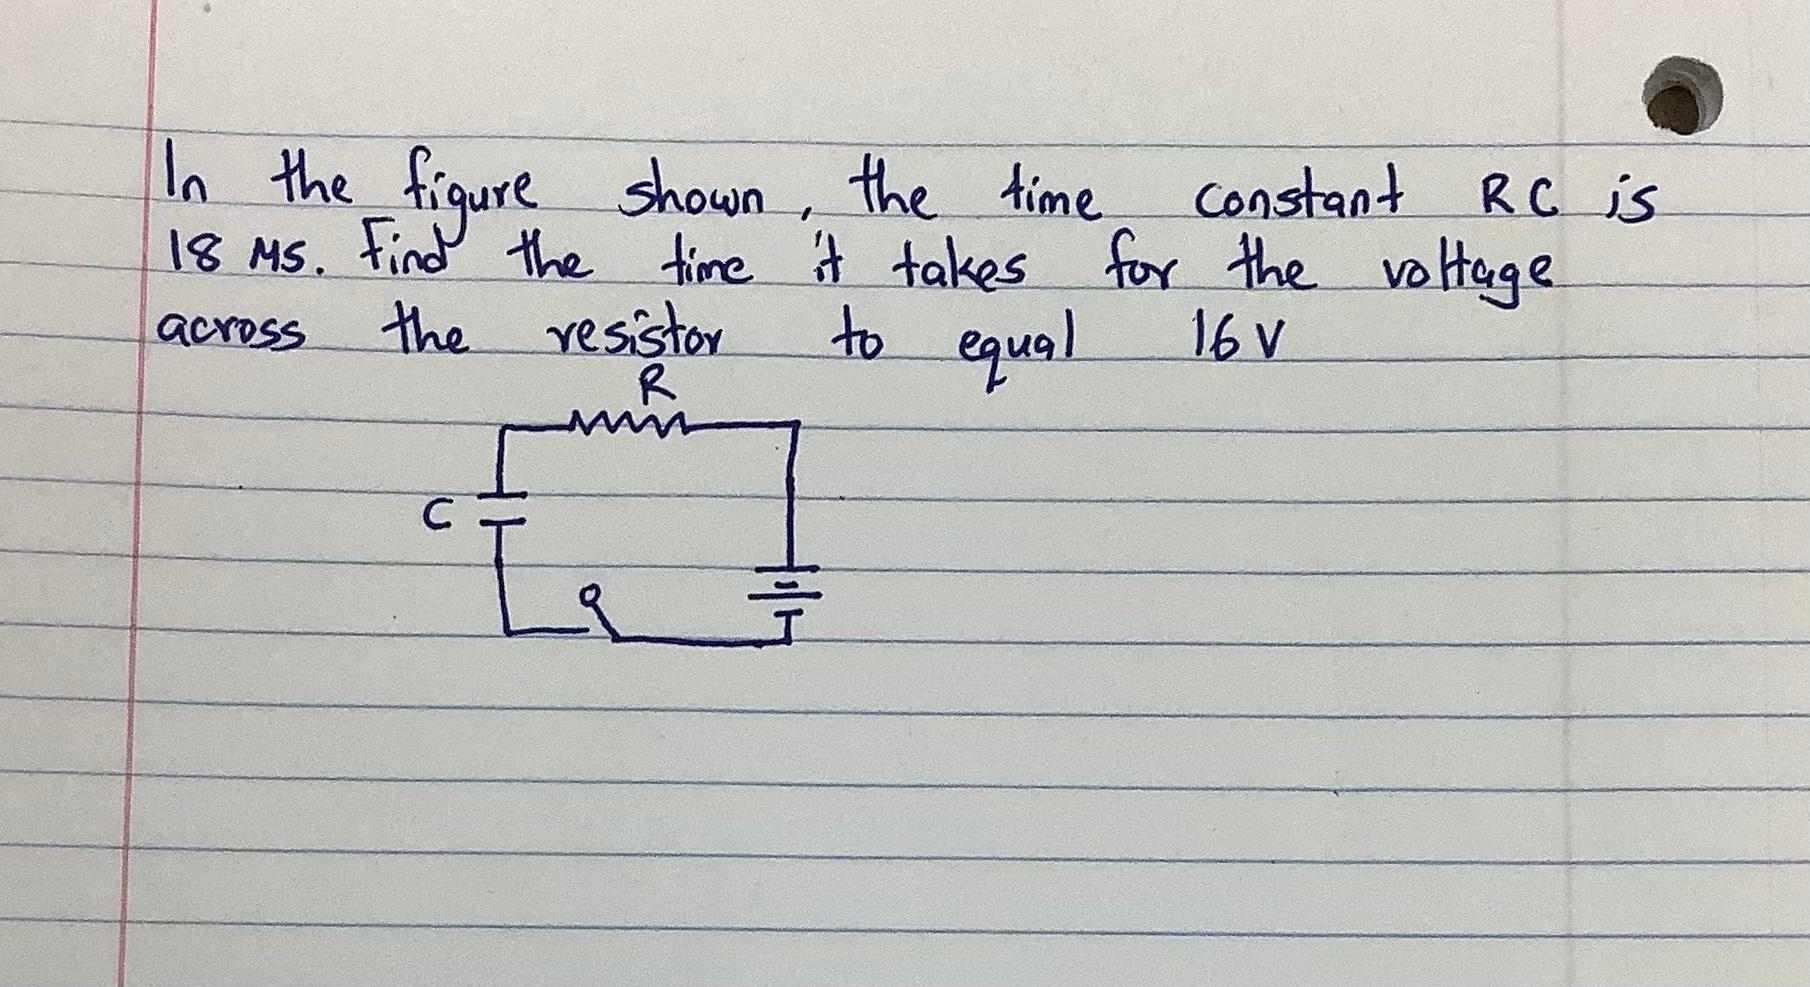 In the figure shown, the time constant RC is
18 MS. Find the time it takes for the voltage
across the resistor to equal 16 V
R
C